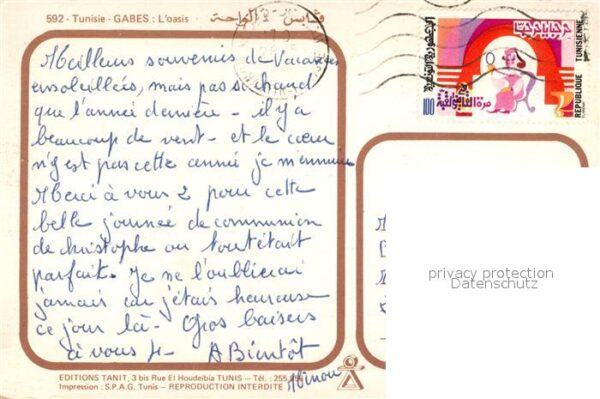 592 - Tunisie - GABES : L'oasis قابس - الواحة
Meilleurs souvenirs de Vacances
ensoleillées, mais pas si chaud
que l'année dernière - il y a
beaucoup de vent - et le cœur
n'y est pas cette année je m'ennuie
Merci à vous 2 pour cette
belle journée de communion
de christophe ou tout était
parfait. Je ne l'oublierai
jamais car j'étais heureuse
ce jour là - Gros baisers
à vous 4 - A Bientôt
EDITIONS TANIT, 3 bis Rue El Houdeibia TUNIS - Tél. : 255
Impression : S.P.A.G. Tunis - REPRODUCTION INTERDITE
الجمهورية التونسية
REPUBLIQUE TUNISIENNE
100
privacy protection
Datenschutz